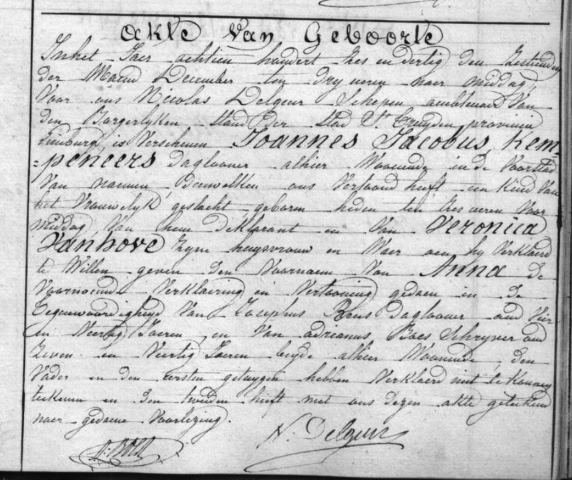 Akte Van Geboorte
In het Jaer achtien hundert zes en dertig den
der Maend December ten dry uren naer middag
Voor ons Nicolas Delgeur Schepen ambtenaer Van
den Borgerlyken Stand der Stad St Truyden, provincie
Limburg, is Verschenen Joannes Jacobus, Kem=
=peneers Daglooner alhier Woonende in de Voorstad
Van naemen ons Vertoond heeft een Kind Van
het Vrouwelyk geslacht geboren heden ten zes uren Voor
middag, Van hem Deklarant en Van Veronica
Vanhove Zyne huysvrouw en Waer aen hy Verklaerd
te Willen geven den Voornaem Van Anna de
Voornoemde Verklaering en Vertooning gedaen in de
Tegenwoordigheyd Van Josephus Daglooner oud Vier
en Veertig Jaeren, en Van adrianus, Boes Schryver oud
Zeven en Veertig Jaeren beyde alhier Woonende, den
Vader en den eersten getuygen hebben Verklaerd niet te Konnen
teekenen en den tweeden heeft met ons dezen akte geteekend
naer gedaene Voorlezing.
A. Boes N. Delgeur